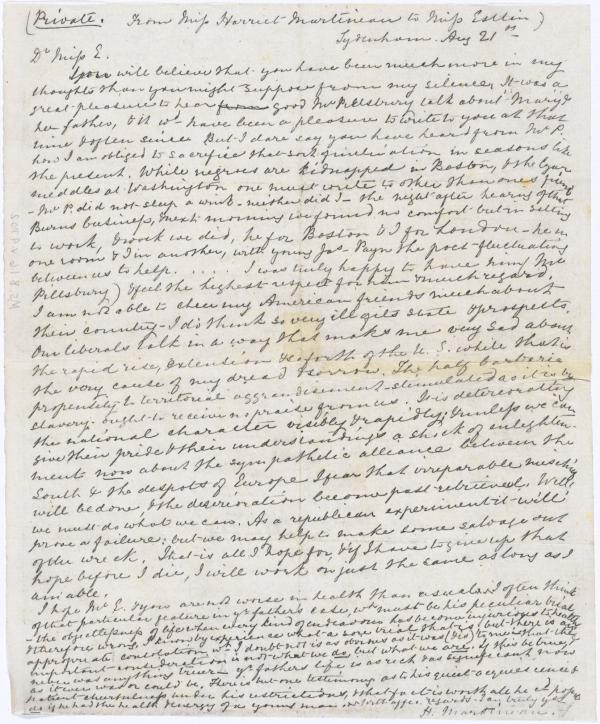 (Private. From Miss Harriet Martineau to Miss Estlin)
Sydenham. Aug 21st
Dr Miss E.
You will believe that you have been much more in my
thoughts than you might suppose from my silence. It was a
great pleasure to hear from good Mr Pillsbury talk about Mary &
her father, & it wd have been a pleasure to write to you at that
time & often since. But I dare say you have heard from Mr P.
how I am obliged to sacrifice that sort of inclination in seasons like
the present. While negroes are kidnapped in Boston, & the Czar
meddles at Washington one must write to other than one's friends
- Mr P. did not sleep a wink - neither did I - the night after hearing of that
Burns business, & next morning we found no comfort but in sitting
to work, & work we did, he for Boston & I for London - he in
one room & I in another, with young Jas Payn the poet fluctuating
between us to help. . . . . . I was truly happy to have him (Mr
Pillsbury) & feel the highest respect for him & much regard.
I am not able to cheer my American friends much about
their country - I do think so very ill of its state & prospects.
Our liberals talk in a way that makes me very sad about
the rapid rise, extension & so forth of the U. S. while that is
the very cause of my dread & sorrow. The half barbaric
propensity to territorial aggrandisement - stimulated as it is by
slavery - ought to receive no praise from us. It is deteriorating
the national character visibly & rapidly; & unless we can
give their pride & their understandings a shock of enlighten-
ment now about the sympathetic alliance between the
South & the despots of Europe I fear that irreparable mischief
will be done, & the deterioration become past retrieval. Well,
we must do what we can. As a republican experiment it will
prove a failure: but we may help to make some salvage out
of the wreck. That is all I hope for, & if I have to give up that
hope before I die, I will work on just the same as long as I
am able.
I hope Mr E. & you are not worse in health than usual. I often think
of that particular feature in yr father's case, wh must be his peculiar trial
- the objectlessness of life when every kind of endeavour has become injurious to health
& therefore wrong. I know by experience what a sore trial that is; but there is an
appropriate consolation wh I doubt not is as obvious to him as it was to me, that the
important consideration is not what we do but what we are. If this be true,
never was anything truer - yr father's life is as rich & as significant now
as it ever was or could be. There is but one testimony as to his quiet acquiescence &
patient cheerfulness under his restrictions, & that fact is worth all he cd hope to
do if he had the health & energy of a young man. regards - I am truly yrs
H. Martineau